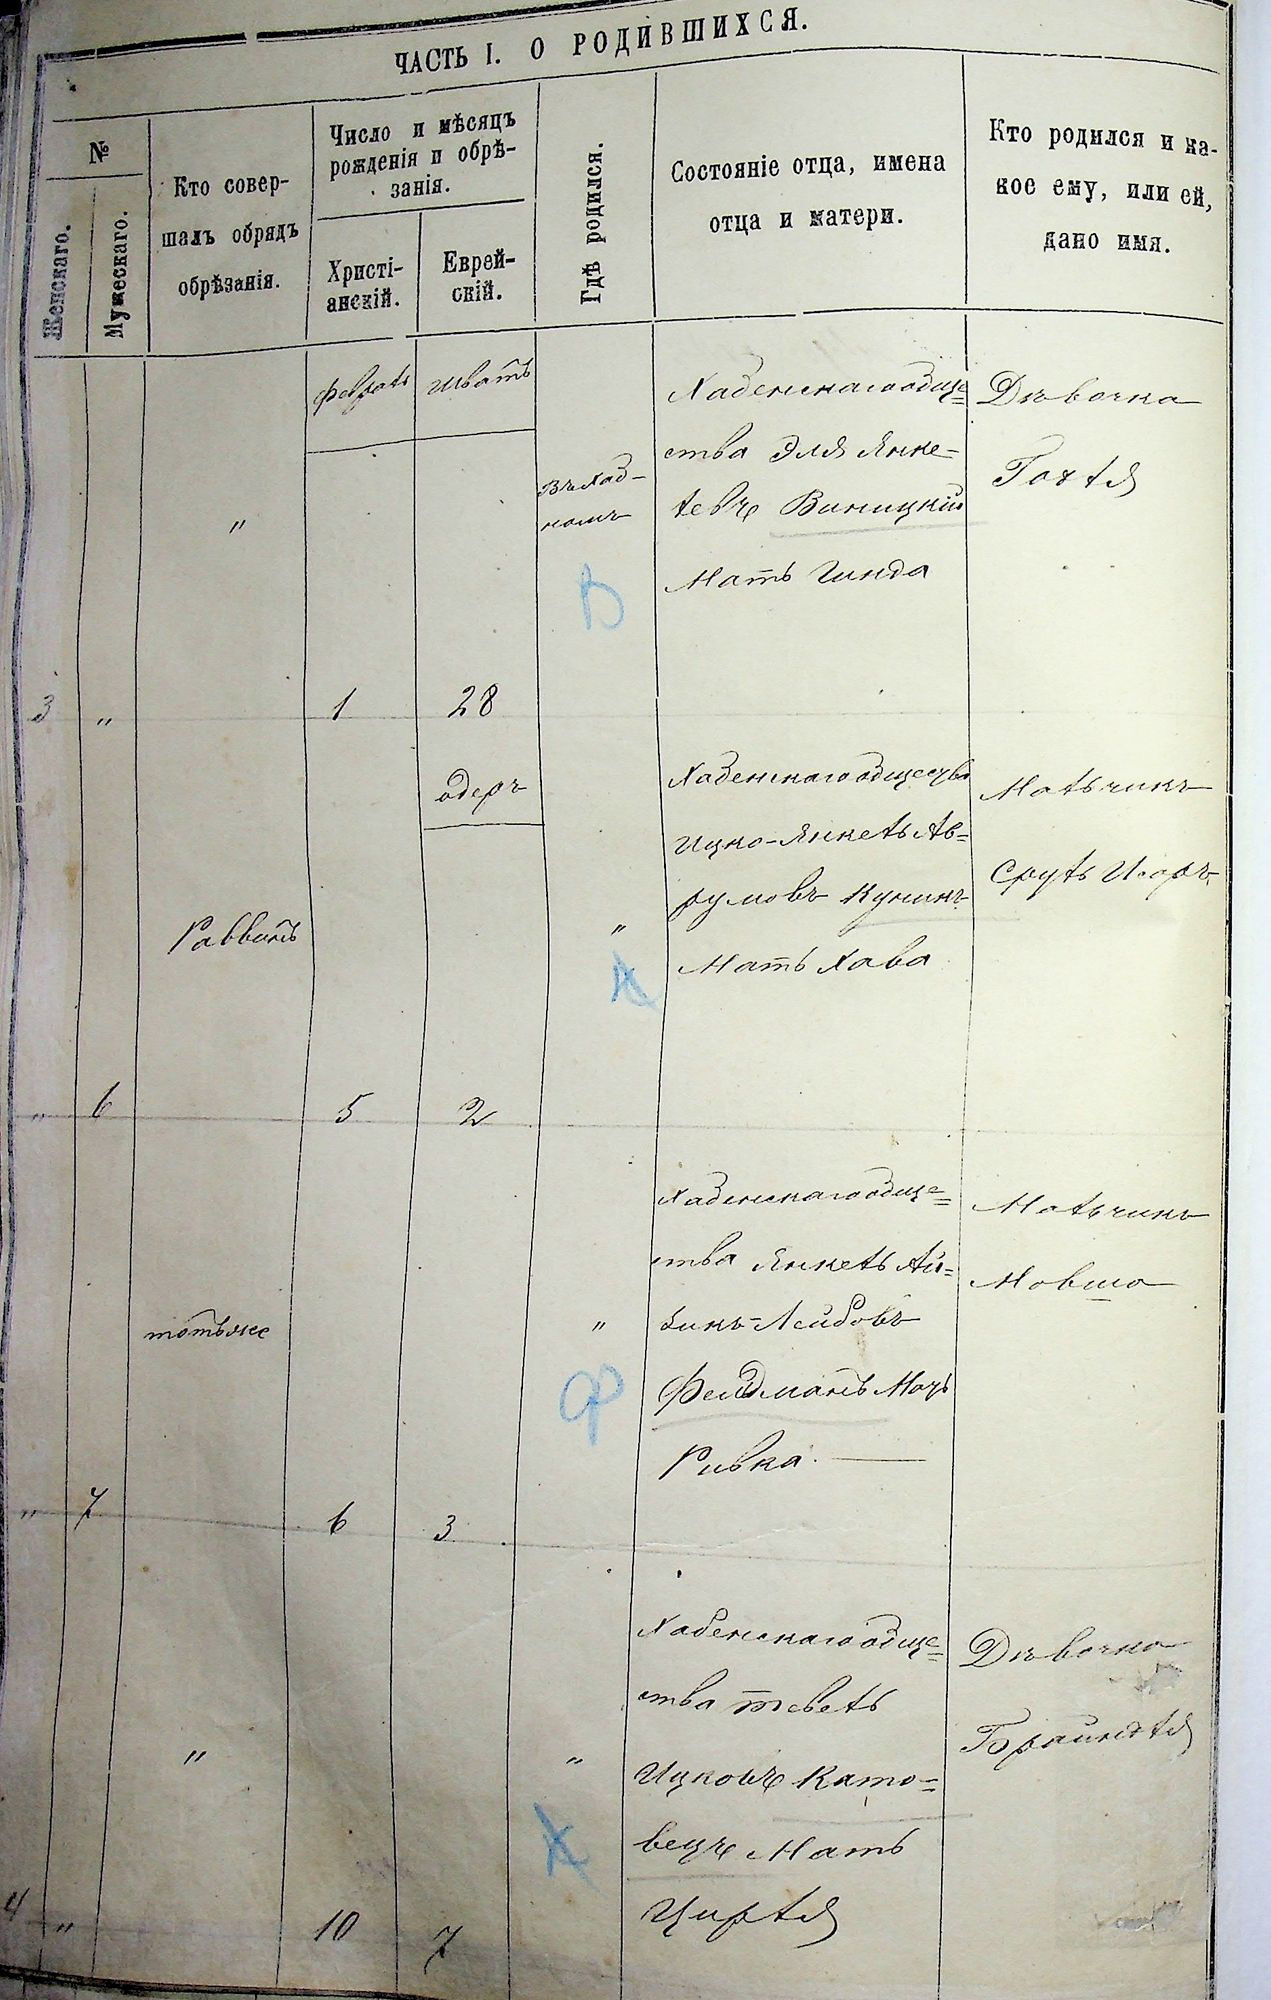 ЧАСТЬ I. О РОДИВШИХСЯ.
№
Женскаго.
Мужескаго.
Кто совер-
шалъ обрядъ
обрѣзанія.
Число и мѣсяцъ
рожденія и обрѣ-
занія.
Христі-
анскій.
Еврей-
скій.
Гдѣ родился.
Состояніе отца, имена
отца и матери.
Кто родился и ка-
кое ему, или ей,
дано имя.
3
"
"
Февраль
1
Шватъ
28
Въ Хаб-
номъ
В
Хабенскаго обще=
ства Эля Янке=
левъ Виницкій
Мать Гинда
Дѣвочка
"
6
Раввинъ
5
Адеръ
2
"
К
Хабенскаго общества
Ицко-Янкель Ав=
румовъ Кунинъ
Мать Хава
Мальчикъ
Сруль
"
7
тотъ же
6
3
"
Ф
Хабенскаго обще=
ства Янкель Ай=
зикъ-Лейбовъ
Фельдманъ Мать
Ривка
Мальчикъ
Мовша
4
"
"
10
7
"
К
Хабенскаго обще=
ства Тевель
Ицковъ Като=
вецъ Мать
Цирля
Дѣвочка
Брайндля